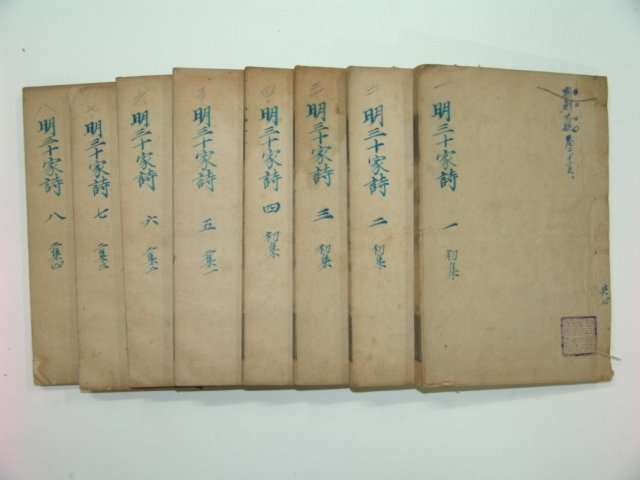 一
明三十家詩 一 初集
共七
二
明三十家詩 二 初集
三
明三十家詩 三 初集
四
明三十家詩 四 初集
五
明三十家詩 五 二集一
六
明三十家詩 六 二集二
七
明三十家詩 七 二集三
八
明三十家詩 八 二集四